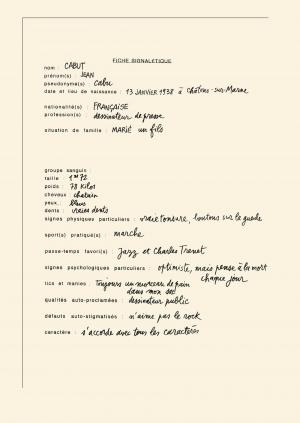 FICHE SIGNALÉTIQUE
nom : CABUT
prénom(s) : JEAN
pseudonyme(s) : Cabu
date et lieu de naissance : 13 JANVIER 1938 à Châlons-sur-Marne
nationalité(s) : FRANÇAISE
profession(s) : dessinateur de presse
situation de famille : MARIÉ un fils
groupe sanguin :
taille : 1m72
poids : 78 Kilos
cheveux : chatain
yeux : bleus
dents : vraies dents
signes physiques particuliers : vraie tonsure, boutons sur le
sport(s) pratiqué(s) : marche
passe-temps favori(s) : Jazz et Charles Trenet
signes psychologiques particuliers : optimiste, mais pense à la mort
chaque jour
tics et manies : toujours un morceau de pain
dans mon sac
qualités auto-proclamées : dessinateur public
défauts auto-stigmatisés : n'aime pas le rock
caractère : s'accorde avec tous les caractères